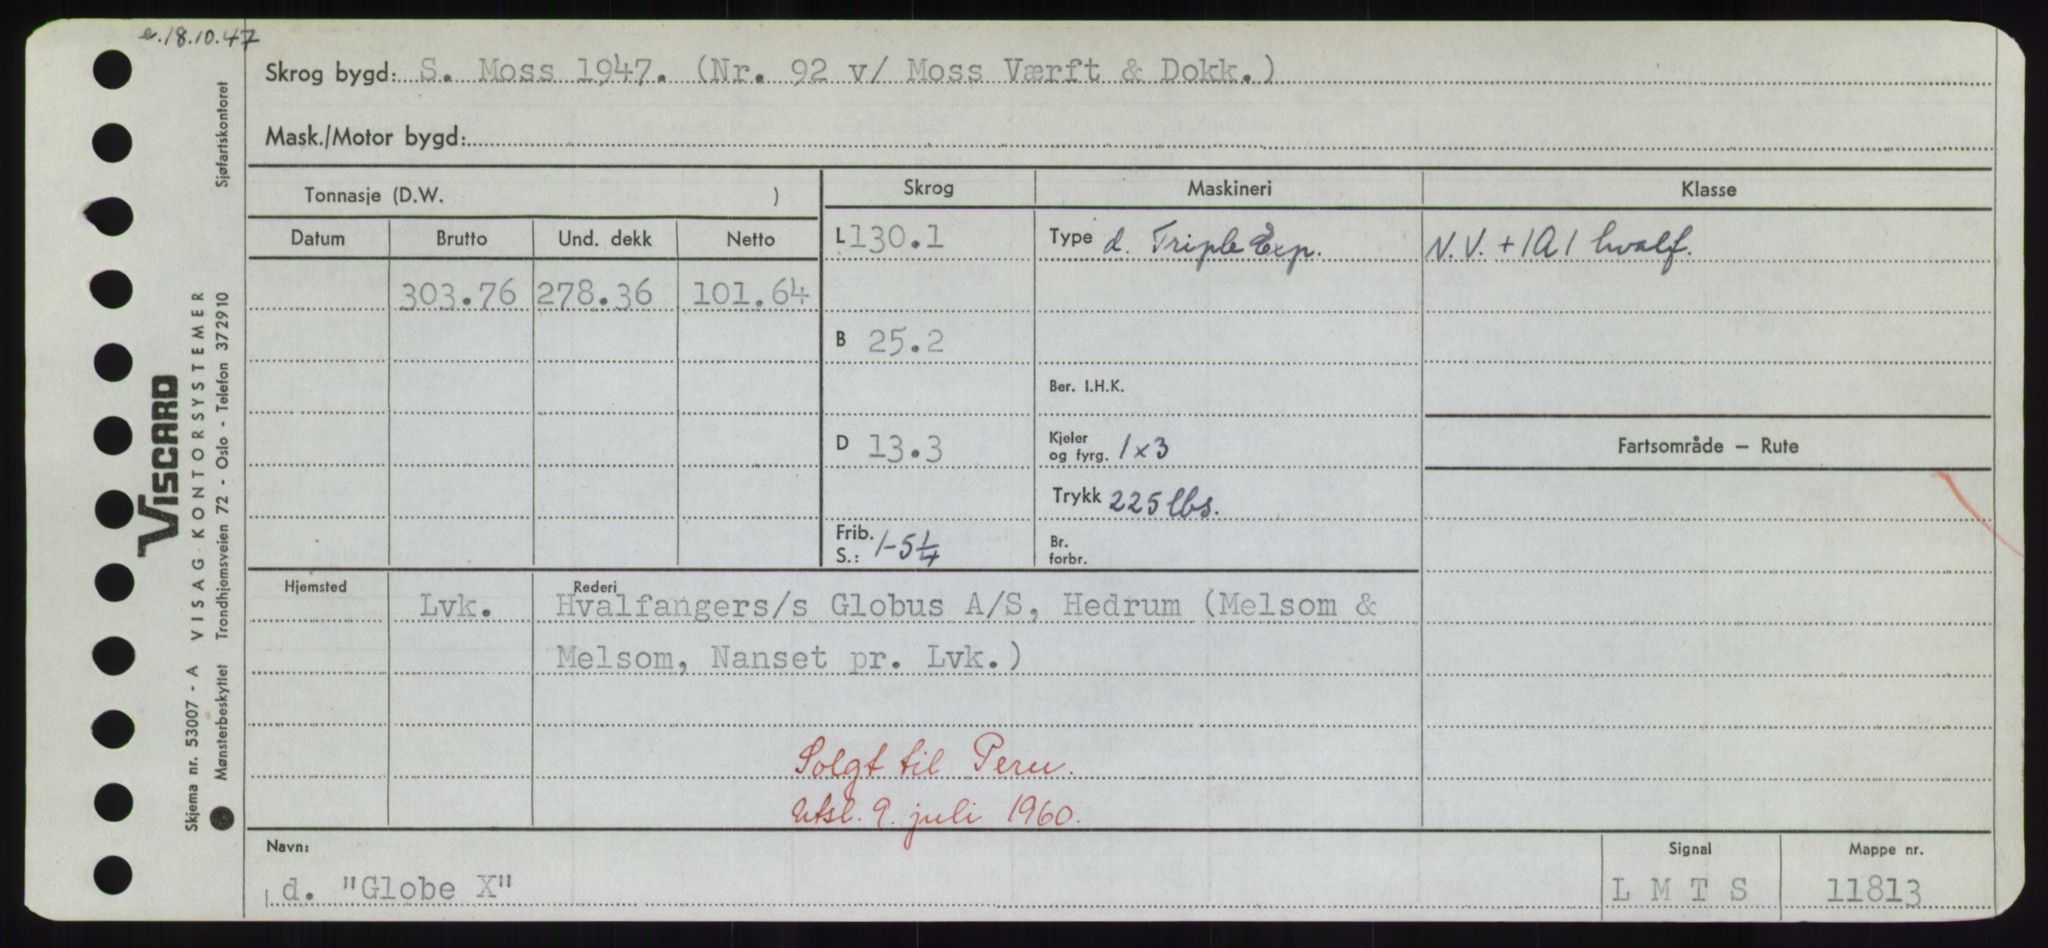 e. 18.10.47
Skrog bygd: S. Moss 1947. (Nr. 92 v/ Moss Værft & Dokk.)
Mask./Motor bygd:
Tonnasje (D.W. )
Skrog Maskineri Klasse
Datum Brutto Und. dekk Netto
L 130.1 Type d. Triple Exp. N.V. + 1A1 hvalf.
303.76 278.36 101.64
B 25.2
Ber. I.H.K.
D 13.3 Kjeler og fyrg. 1x3 Fartsområde – Rute
Trykk 225 lbs.
Frib. S.: 1-5 1/4 Br. forbr.
Hjemsted Lvk. Rederi Hvalfangers/s Globus A/S, Hedrum (Melsom &
Melsom, Nanset pr. Lvk.)
Solgt til Peru.
Utsl. 9. juli 1960.
Navn: Signal Mappe nr.
d. "Globe X" L M T S 11813
VISCARD
Skjema nr. 53007 - A VISAG KONTORSYSTEMER
Mønsterbeskyttet Trondhjemsveien 72 - Oslo - Telefon 372910 Sjøfartskontoret